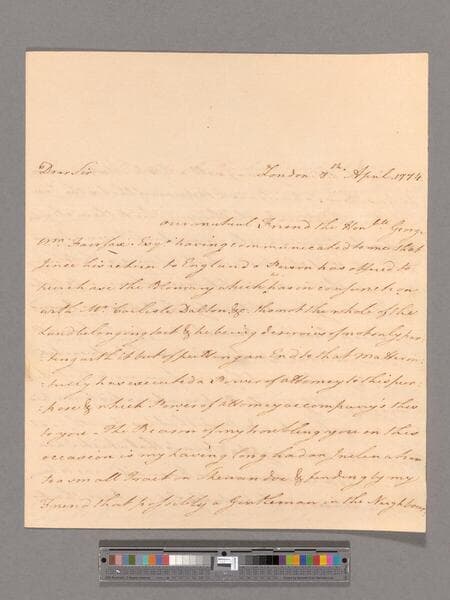 Dear Sir London 8th April 1774
our mutual Friend the Honble George
Wm Fairfax Esqr having communicated to me that
since his return to England a Person has offered to
purchase the Bloomary which he has in conjunction
with Mr Carlisle Dalton &c tho not the whole of the
Land belonging to it & he being desirous of not only par-
ting with it but of putting an End to that matter
has executed a Power of attorney to this pur-
pose & which Power of attorney accompany's this
to you - The Reason of my troubling you on this
occasion is my having long had an Inclination
to a small Tract on Shenandoe & finding by my
Friend that possibly a Gentleman in the Neighbour